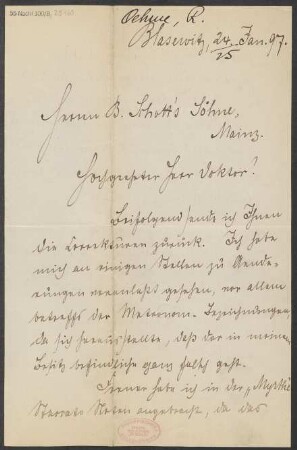 Oehme, R.
Blasewitz, 24. Jan. 97.
25
Herrn B. Schott's Söhne,
Mainz.
Hochgeehrter Herr Doktor!
Beifolgend sende ich Ihnen
die Correkturen zurück. Ich habe
mich an einigen Stellen zu Aende-
rungen veranlaßt gesehen, vor allem
betreffs der Metronom-Bezeichnungen
da sich herausstellte, daß das in meinem
Besitz befindliche ganz falsch geht.
Ferner habe ich in der "Myrthe"
Noten angebracht, da das